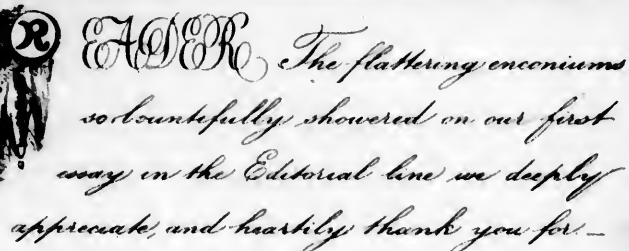 READER The flattering enconiums
so bountifully showered on our first
essay in the Editorial line we deeply
appreciate, and heartily thank you for —